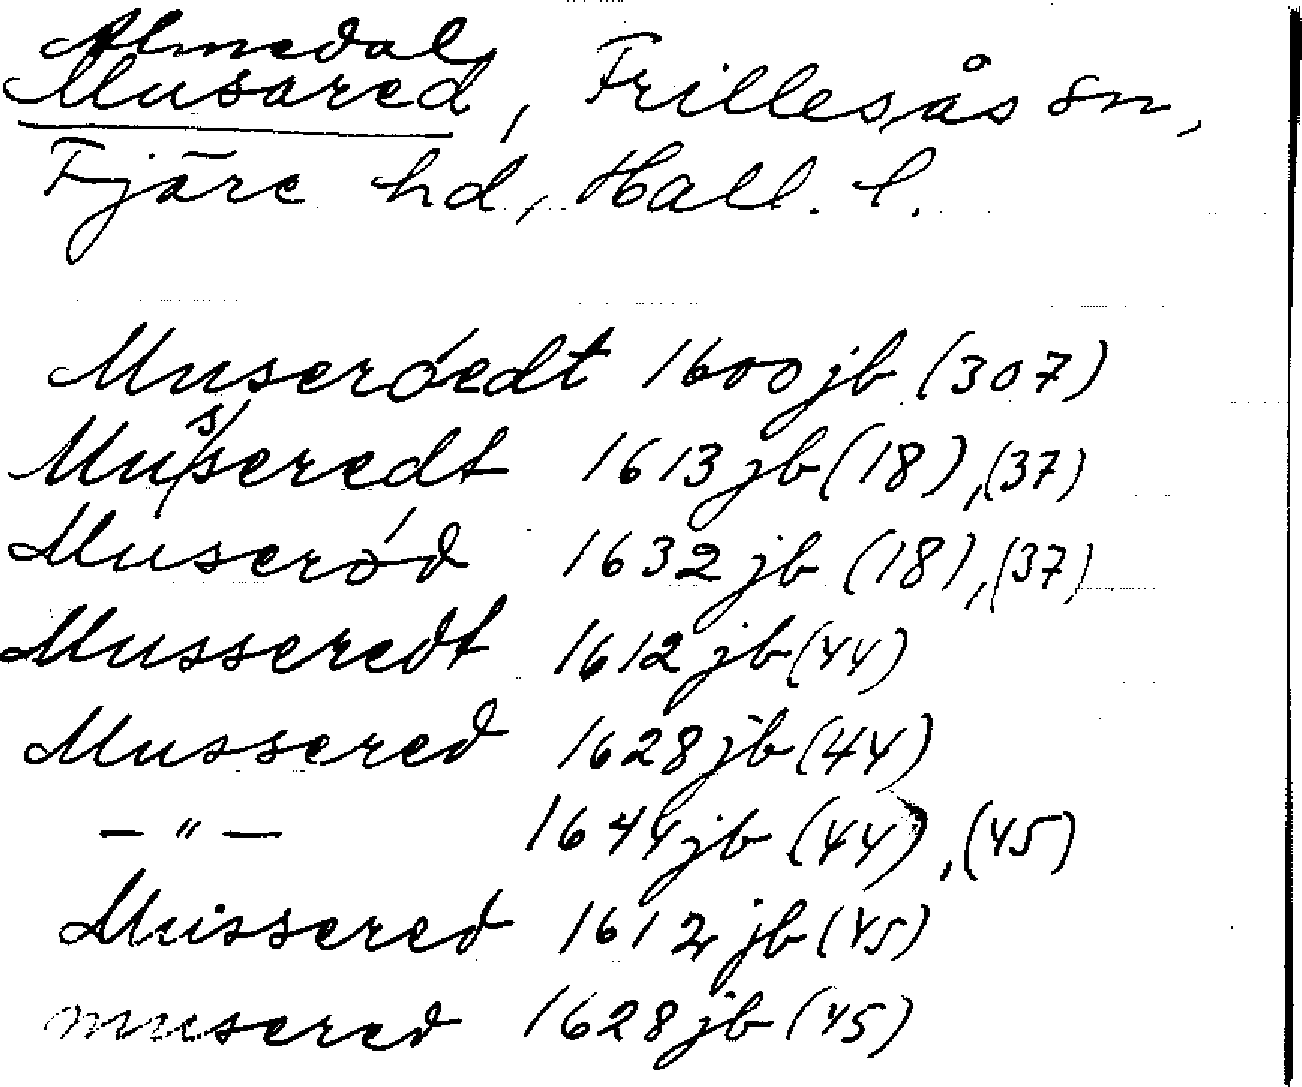 Almedal
Musared, Frillesås sn,
Fjäre hd, Hall. l.
Museróedt 1600 jb (307)
Musseredt 1613 jb (18), (37)
Museród 1632 jb (18), (37)
Musseredt 1612 jb (44)
Mussered 1628 jb (44)
—"— 1644 jb (44), (45)
Mussered 1612 jb (45)
musered 1628 jb (45)